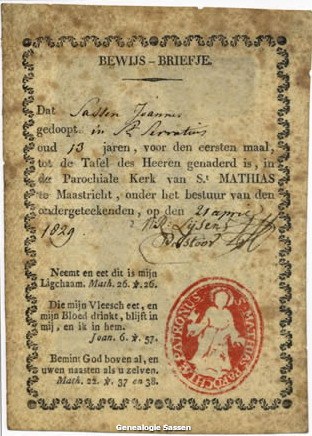 BEWIJS-BRIEFJE.
Dat Sassen Joannes
gedoopt in St Servatius
oud 13 jaren, voor den eersten maal,
tot de Tafel des Heeren genaderd is, in
de Parochiale Kerk van S.t MATHIAS
te Maastricht, onder het bestuur van den
ondergeteekenden, op den 21 april
1829
Pastoor
Neemt en eet dit is mijn
Ligchaam. Math. 26. ℣. 26.
Die mijn Vleesch eet, en
mijn Bloed drinkt, blijft in
mij, en ik in hem.
Joan. 6. ℣. 57.
Bemint God boven al, en
uwen naasten als u zelven.
Math. 22. ℣. 37 en 38.
PATRONUS
S. MATHIAS
Genealogie Sassen